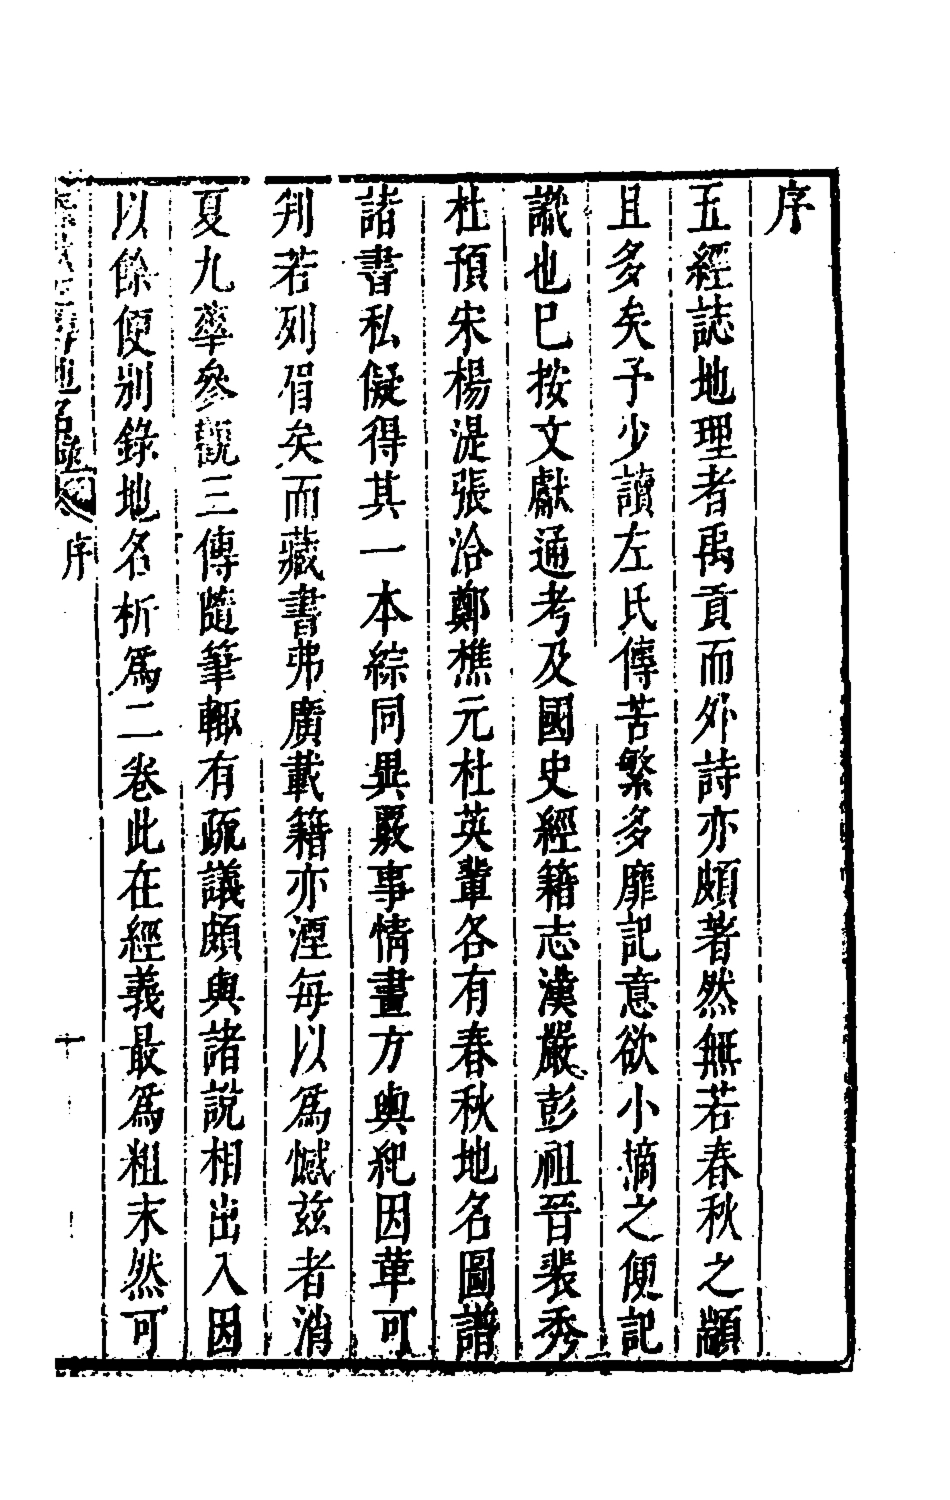 序
五經誌地理者禹貢而外詩亦頗著然無若春秋之顓
且多矣予少讀左氏傳苦繁多靡記意欲小摘之便記
識也已按文獻通考及國史經籍志漢嚴彭祖晉裴秀
杜預宋楊湜張洽鄭樵元杜英輩各有春秋地名圖譜
諸書私儗得其一本綜同異覈事情畫方輿紀因革可
判若列眉矣而藏書弗廣載籍亦湮每以爲憾茲者消
夏九率參觀三傳隨筆輙有疏議頗與諸說相出入因
以餘便别錄地名析爲二卷此在經義最爲粗末然可
地名 序